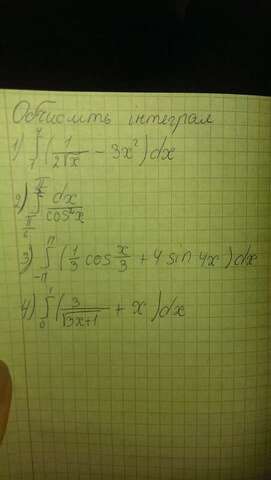 Обчислить інтеграл
1) ∫₁⁴ (1/(2√x) - 3x²) dx
2) ∫ dx/cos²x
3) ∫₋π^π (1/3 cos x/3 + 4 sin 4x) dx
4) ∫₀¹ (3/√(3x+1) + x) dx